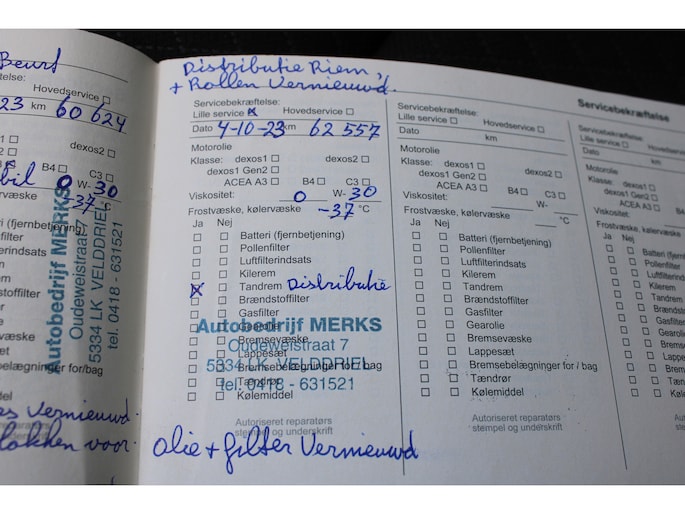 Beurt
Hovedservice
23 km 60 624
dexos2
B4 C3
0 W- 30
-37 °C
Batteri (fjernbetjening)
Autobedrijf MERKS
Oudeweistraat 7
5334 LK VELDDRIEL
tel. 0418 - 631521
Vernieuwd.
voor
Distributie Riem,
+ Rollen Vernieuwd.
Servicebekræftelse:
Lille service X Hovedservice
Dato 4-10-23 km 62 557
Motorolie
Klasse: dexos1 dexos2
dexos1 Gen2
ACEA A3 B4 C3
Viskositet: 0 W- 30
Frostvæske, kølervæske -37 °C
Ja Nej
Batteri (fjernbetjening)
Pollenfilter
Luftfilterindsats
Kilerem
X Tandrem Distributie
Brændstoffilter
Gasfilter
Gearolie
Bremsevæske
Lappesæt
Bremsebelægninger for/bag
Tændrør
Kølemiddel
Autobedrijf MERKS
Oudeweistraat 7
5334 LK VELDDRIEL
tel. 0418 - 631521
Autoriseret reparatørs
stempel og underskrift
olie + filter Vernieuwd
Servicebekræftelse:
Lille service Hovedservice
Dato km
Motorolie
Klasse: dexos1 dexos2
dexos1 Gen2
ACEA A3 B4 C3
Viskositet: W-
Frostvæske, kølervæske °C
Ja Nej
Batteri (fjernbetjening)
Pollenfilter
Luftfilterindsats
Kilerem
Tandrem
Brændstoffilter
Gasfilter
Gearolie
Bremsevæske
Lappesæt
Bremsebelægninger for/bag
Tændrør
Kølemiddel
Autoriseret reparatørs
stempel og underskrift
Servicebekræftelse
Servicebekræftelse:
Lille service
Dato
Motorolie
Klasse: dexos1
dexos1 Gen2
ACEA A3
Viskositet:
Frostvæske, kølervæske
Ja Nej
Batteri
Pollenfilter
Luftfilterindsats
Kilerem
Tandrem
Brændstoffilter
Gasfilter
Gearolie
Bremsevæske
Lappesæt
Bremsebelægninger
Tændrør
Kølemiddel